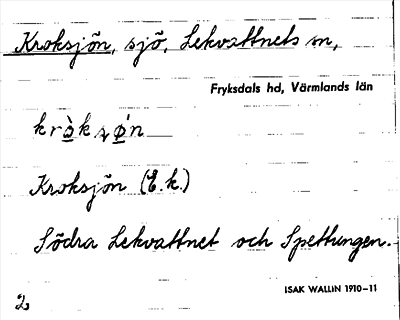 Kroksjön, sjö, Lekvattnets sn,
Fryksdals hd, Värmlands län
Kroksjön (E.k.)
Södra Lekvattnet och Spettungen.
ISAK WALLIN 1910-11
2